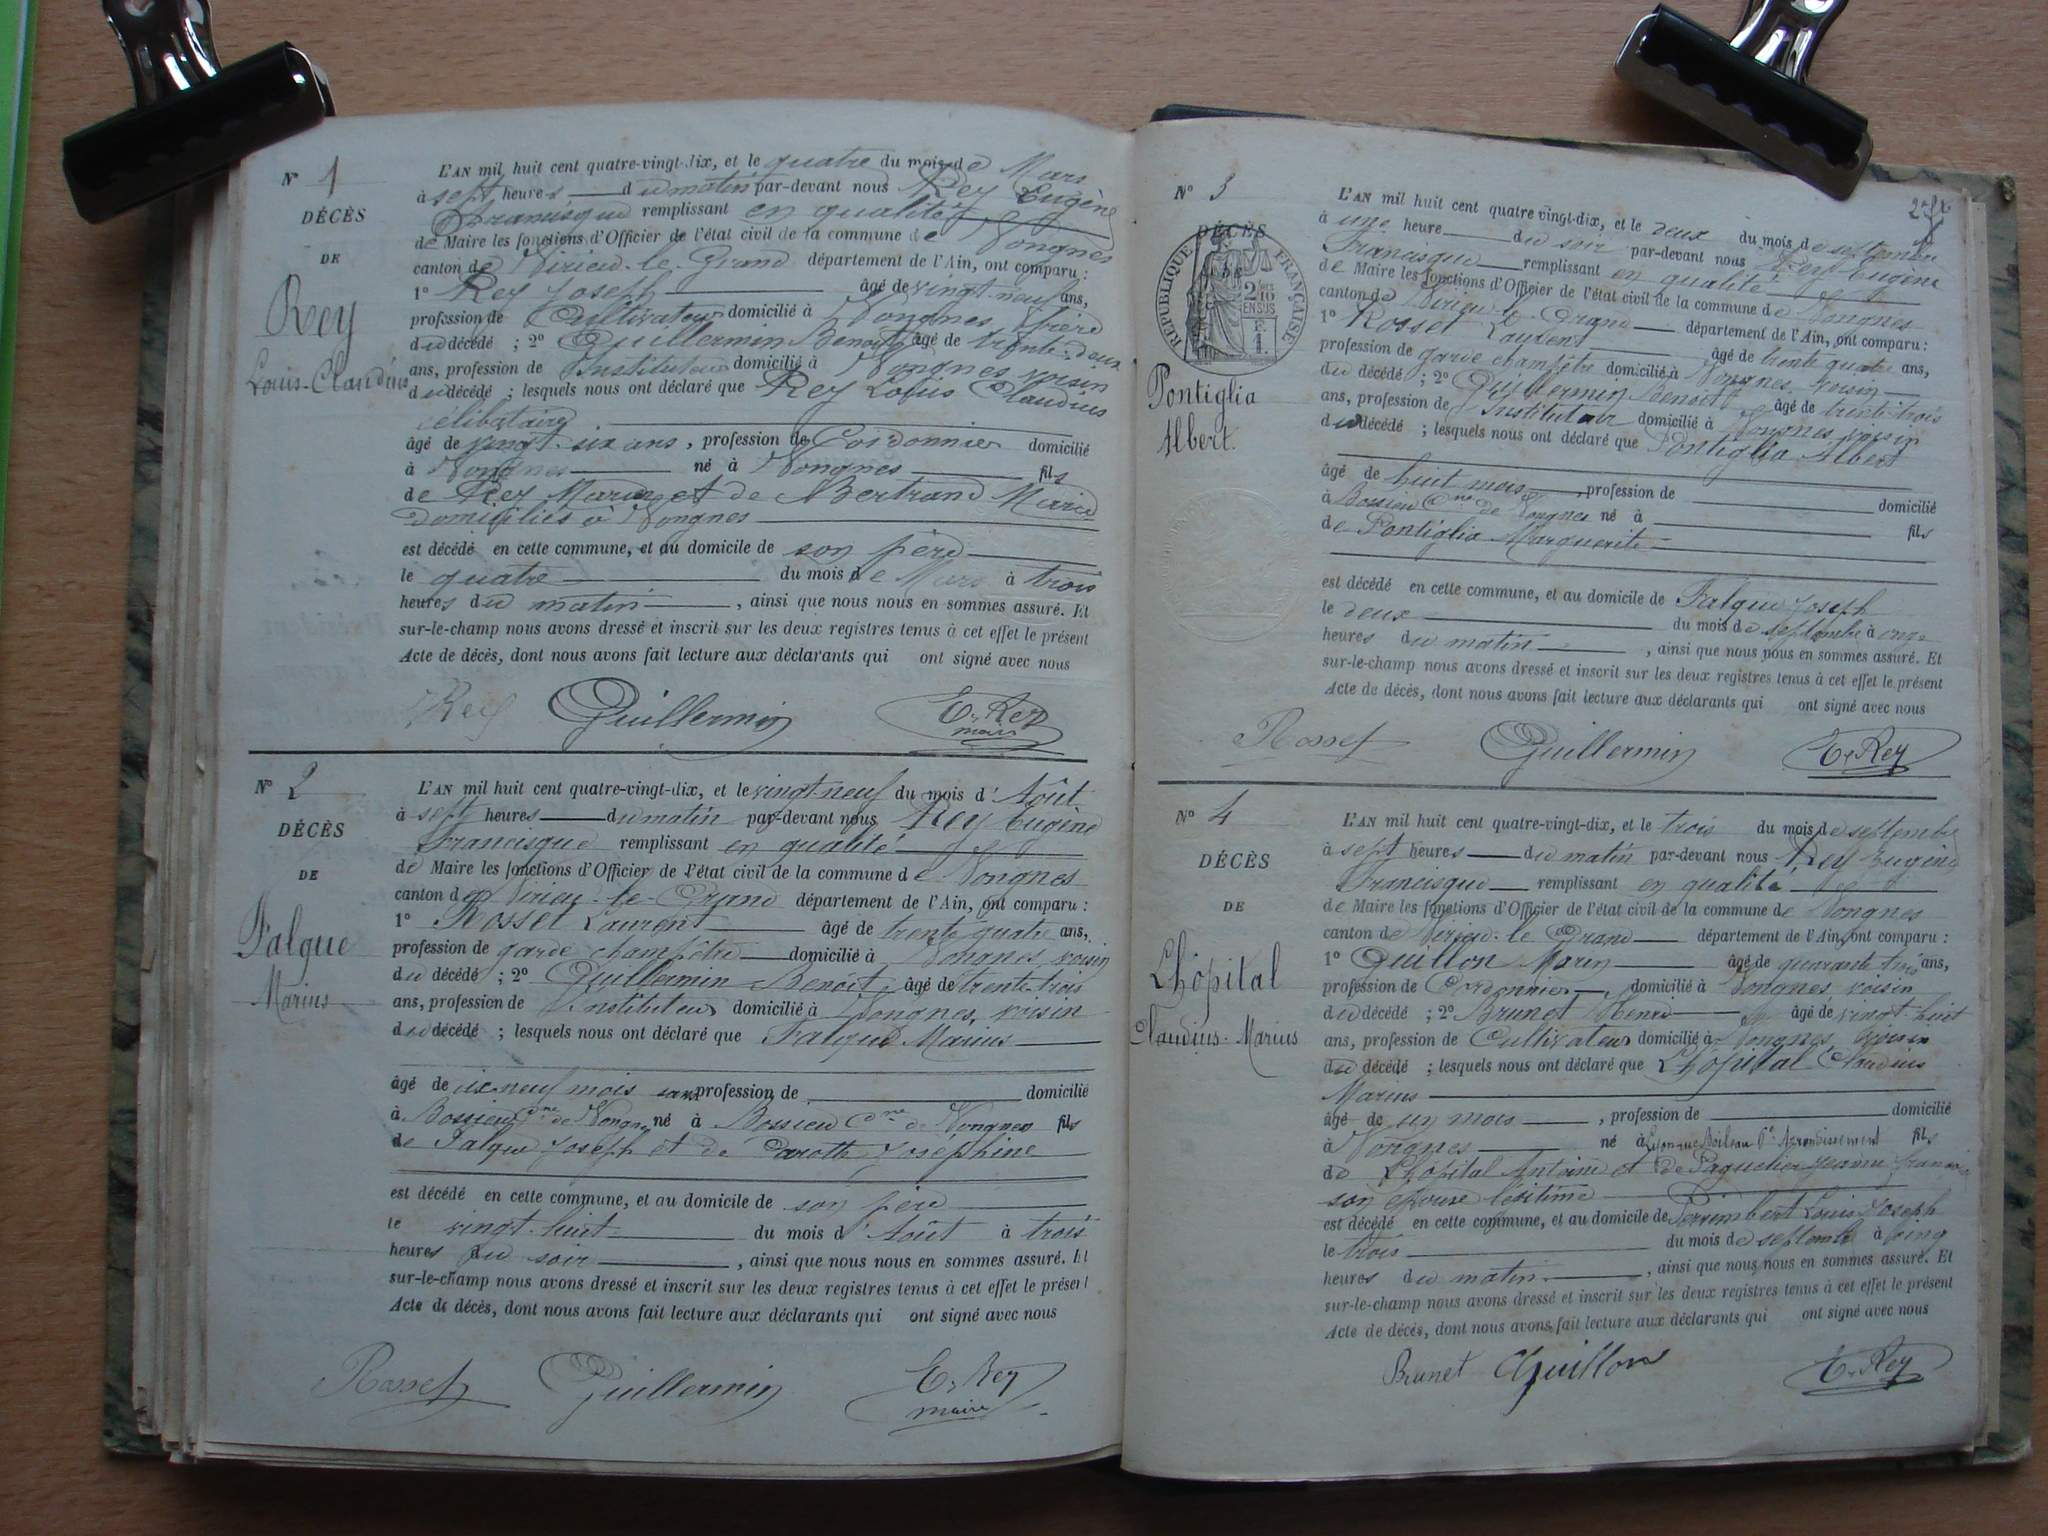 N° 1
DÉCÈS
DE
Rey
Louis-Claudius
L'AN mil huit cent quatre-vingt-dix, et le quatre du mois de Mars
à sept heures du matin par-devant nous Rey Eugène
Francisque remplissant en qualité
de Maire les fonctions d'Officier de l'état civil de la commune de Vongnes
canton de Virieu-le-Grand département de l'Ain, ont comparu :
1° Rey Joseph âgé de vingt neuf ans,
profession de Cultivateur domicilié à Vongnes, frère
du décédé ; 2° Guillermin Benoît âgé de trente-deux
ans, profession de Instituteur domicilié à Vongnes voisin
du décédé ; lesquels nous ont déclaré que Rey Louis Claudius
célibataire
âgé de vingt-six ans, profession de Cordonnier domicilié
à Vongnes né à Vongnes fils
de Rey Marin et de Bertrand Marie
domiciliés à Vongnes
est décédé en cette commune, et au domicile de son père
le quatre du mois de Mars à trois
heures du matin, ainsi que nous nous en sommes assuré. Et
sur-le-champ nous avons dressé et inscrit sur les deux registres tenus à cet effet le présent
Acte de décès, dont nous avons fait lecture aux déclarants qui ont signé avec nous
Rey Guillermin E. Rey
maire
N° 2
DÉCÈS
DE
Falque
Marius
L'AN mil huit cent quatre-vingt-dix, et le vingt-neuf du mois d'Août
à sept heures du matin par-devant nous Rey Eugène
Francisque remplissant en qualité
de Maire les fonctions d'Officier de l'état civil de la commune de Vongnes
canton de Virieu-le-Grand département de l'Ain, ont comparu :
1° Rosset Laurent âgé de trente quatre ans,
profession de garde champêtre domicilié à Vongnes, voisin
du décédé ; 2° Guillermin Benoît, âgé de trente-trois
ans, profession de Instituteur domicilié à Vongnes, voisin
du décédé ; lesquels nous ont déclaré que Falque Marius
âgé de dix neuf mois sans profession de domicilié
à Bossieu Cne de Vongnes né à Bossieu Cne de Vongnes fils
de Falque Joseph et de Joséphine
est décédé en cette commune, et au domicile de son père
le vingt-huit du mois d'Août à trois
heures du soir, ainsi que nous nous en sommes assuré. Et
sur-le-champ nous avons dressé et inscrit sur les deux registres tenus à cet effet le présent
Acte de décès, dont nous avons fait lecture aux déclarants qui ont signé avec nous
Rosset Guillermin E. Rey
maire
N° 3
DÉCÈS
DE
RÉPUBLIQUE FRANÇAISE
2/10
EN SUS
F.
1.
Pontiglia
Albert.
L'AN mil huit cent quatre vingt-dix, et le deux du mois de septembre
à une heure du soir par-devant nous Rey Eugène
Francisque remplissant en qualité
de Maire les fonctions d'Officier de l'état civil de la commune de Vongnes
canton de Virieu-le-Grand département de l'Ain, ont comparu :
1° Rosset Laurent âgé de trente quatre ans,
profession de garde champêtre domicilié à Vongnes, voisin
du décédé ; 2° Guillermin Benoît âgé de trente-trois
ans, profession de Instituteur domicilié à Vongnes voisin
du décédé ; lesquels nous ont déclaré que Pontiglia Albert
âgé de huit mois, profession de domicilié
à Bossieu Cne de Vongnes né à fils
de Pontiglia Marguerite
est décédé en cette commune, et au domicile de Falque Joseph
le deux du mois de septembre à onze
heures du matin, ainsi que nous nous en sommes assuré. Et
sur-le-champ nous avons dressé et inscrit sur les deux registres tenus à cet effet le présent
Acte de décès, dont nous avons fait lecture aux déclarants qui ont signé avec nous
Rosset Guillermin E. Rey
N° 4
DÉCÈS
DE
Lhôpital
Claudius-Marius
L'AN mil huit cent quatre-vingt-dix, et le trois du mois de septembre
à sept heures du matin par-devant nous Rey Eugène
Francisque remplissant en qualité
de Maire les fonctions d'Officier de l'état civil de la commune de Vongnes
canton de Virieu-le-Grand département de l'Ain, ont comparu :
1° Guillon Marin âgé de quarante trois ans,
profession de Cordonnier, domicilié à Vongnes voisin
du décédé ; 2° Brunet Henri âgé de vingt-huit
ans, profession de Cultivateur domicilié à Vongnes, voisin
du décédé ; lesquels nous ont déclaré que Lhôpital Claudius
Marius
âgé de un mois, profession de domicilié
à Vongnes né à Lyon rue Boileau 6e Arrondissement fils
de Lhôpital Antoine et de Paquelier Jeanne
son épouse légitime
est décédé en cette commune, et au domicile de Perrimbert Louis Joseph
le trois du mois de septembre à cinq
heures du matin, ainsi que nous nous en sommes assuré. Et
sur-le-champ nous avons dressé et inscrit sur les deux registres tenus à cet effet le présent
Acte de décès, dont nous avons fait lecture aux déclarants qui ont signé avec nous
Brunet Guillon E. Rey